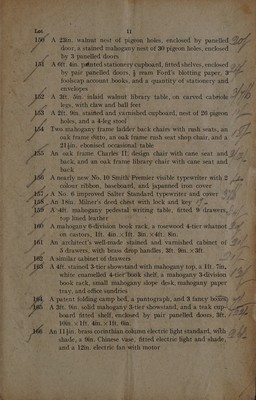 Lot 11
150 A 23in. walnut nest of pigeon holes, enclosed by panelled
door, a stained mahogany nest of 30 pigeon holes, enclosed
by 3 panelled doors
151 A 6ft. 4in. painted stationery cupboard, fitted shelves, enclosed
by pair panelled doors, ½ ream Ford's blotting paper, 3
foolscap account books, and a quantity of stationery and
envelopes
152 A 3ft. 5in. inlaid walnut library table, on carved cabriole
legs, with claw and ball feet
153 A 2ft. 9in. stained and varnished cupboard, nest of 26 pigeon
holes, and a 4-leg stool
154 Two mahogany frame ladder back chairs with rush seats, an
oak frame ditto, an oak frame rush seat shop chair, and a
21½in. chemised occasional table
155 An oak frame Charles II. design chair with cane seat and
back, and an oak frame library chair with cane seat and
back
156 A nearly new No. 10 Smith Premier visible typewriter with 2
colour ribbon, baseboard, and japanned iron cover
157 A No. 6 improved Salter Standard typewriter and cover
158 An 18in. Milner's deed chest with lock and key
159 A 4ft. mahogany pedestal writing table, fitted 9 drawers,
top lined leather
160 A mahogany 6-division book rack, a rosewood 4-tier whatnot
on castors, 1ft. 4in. × 1ft. 3in. × 4ft. 8in.
161 An architect's well-made stained and varnished cabinet of
5 drawers, with brass drop handles, 3ft. 9in. × 3ft.
162 A similar cabinet of drawers
163 A 4ft. stained 3-tier showstand with mahogany top, a 1ft. 7in.
white enamelled 4-tier book shelf, a mahogany 3-division
book rack, small mahogany slope desk, mahogany paper
tray, and office sundries
164 A patent folding camp bed, a pantograph, and 3 fancy boxes
165 A 3ft. 9in. solid mahogany 3-tier showstand, and a teak cup-
board fitted shelf, enclosed by pair panelled doors, 3ft.
10in. × 1ft. 4in. × 1ft. 6in.
166 An 11½in. brass corinthian column electric light standard, with
shade, a 9in. Chinese vase, fitted electric light and shade,
and a 12in. electric fan with motor